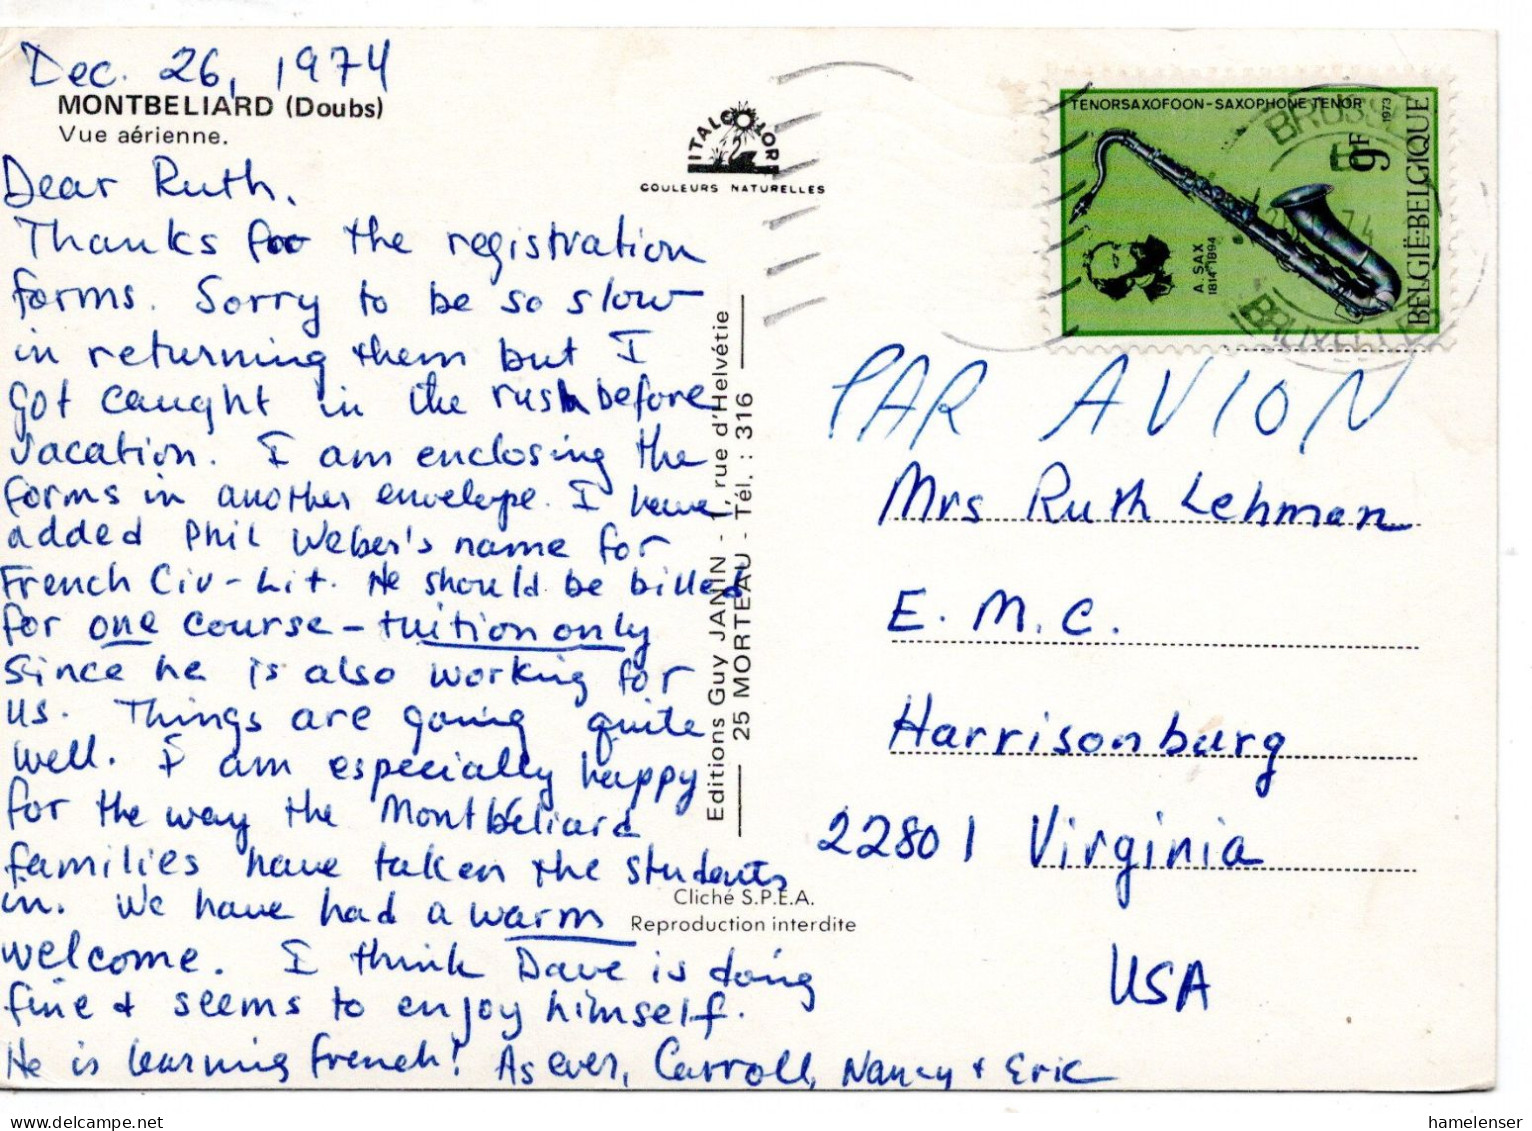 Dec. 26, 1974
MONTBELIARD (Doubs)
Vue aérienne.
Dear Ruth,
Thanks for the registration
forms. Sorry to be so slow
in returning them but I
got caught in the rush before
vacation. I am enclosing the
forms in another envelope. I have
added Phil Weber's name for
French Civ-Lit. He should be billed
for one course - tuition only
since he is also working for
us. Things are going quite
well. I am especially happy
for the way the Montbéliard
families have taken the students
in. We have had a warm
welcome. I think Dave is doing
fine & seems to enjoy himself.
He is learning French! As ever, Carroll, Nancy & Eric
ITALCOLOR
COULEURS NATURELLES
Editions Guy JANIN - 1, rue d'Helvétie
25 MORTEAU - Tél. : 316
Cliché S.P.E.A.
Reproduction interdite
TENORSAXOFOON-SAXOPHONE TENOR
1973
9F
BELGIË-BELGIQUE
A. SAX
1814-1894
BRUSSEL
74
BRUXELLES
PAR AVION
Mrs Ruth Lehman
E. M. C.
Harrisonburg
22801 Virginia
USA
hamelenser